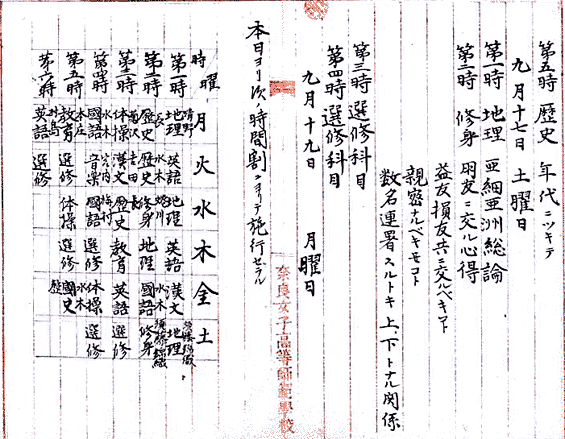 第五時 歴史 年代ニツキテ
九月十七日 土曜日
第一時 地理 亜細亜洲総論
修身 朋友ニ交ル心得
益友損友共ニ交ルベキコト
親密ナルベキモコト
数名連署スルトキ上、下トナル関係
第三時 選修科目
第四時 選修科目
九月十九日 月曜日
本日ヨリ次ノ時間割ニヨリテ施行セラル
奈良女子高等師範學校
時 曜 月 火 水 木 金 土
第一時 地理 英語 地理 英語 漢文 地理
第二時 歴史 歴史 修身 地理 國語 修身
第三時 体操 漢文 歴史 教育 英語 選修
第四時 國語 音楽 國語 選修 体操 選修
第五時 教育 選修 体操 選修 國史
第六時 英語 選修